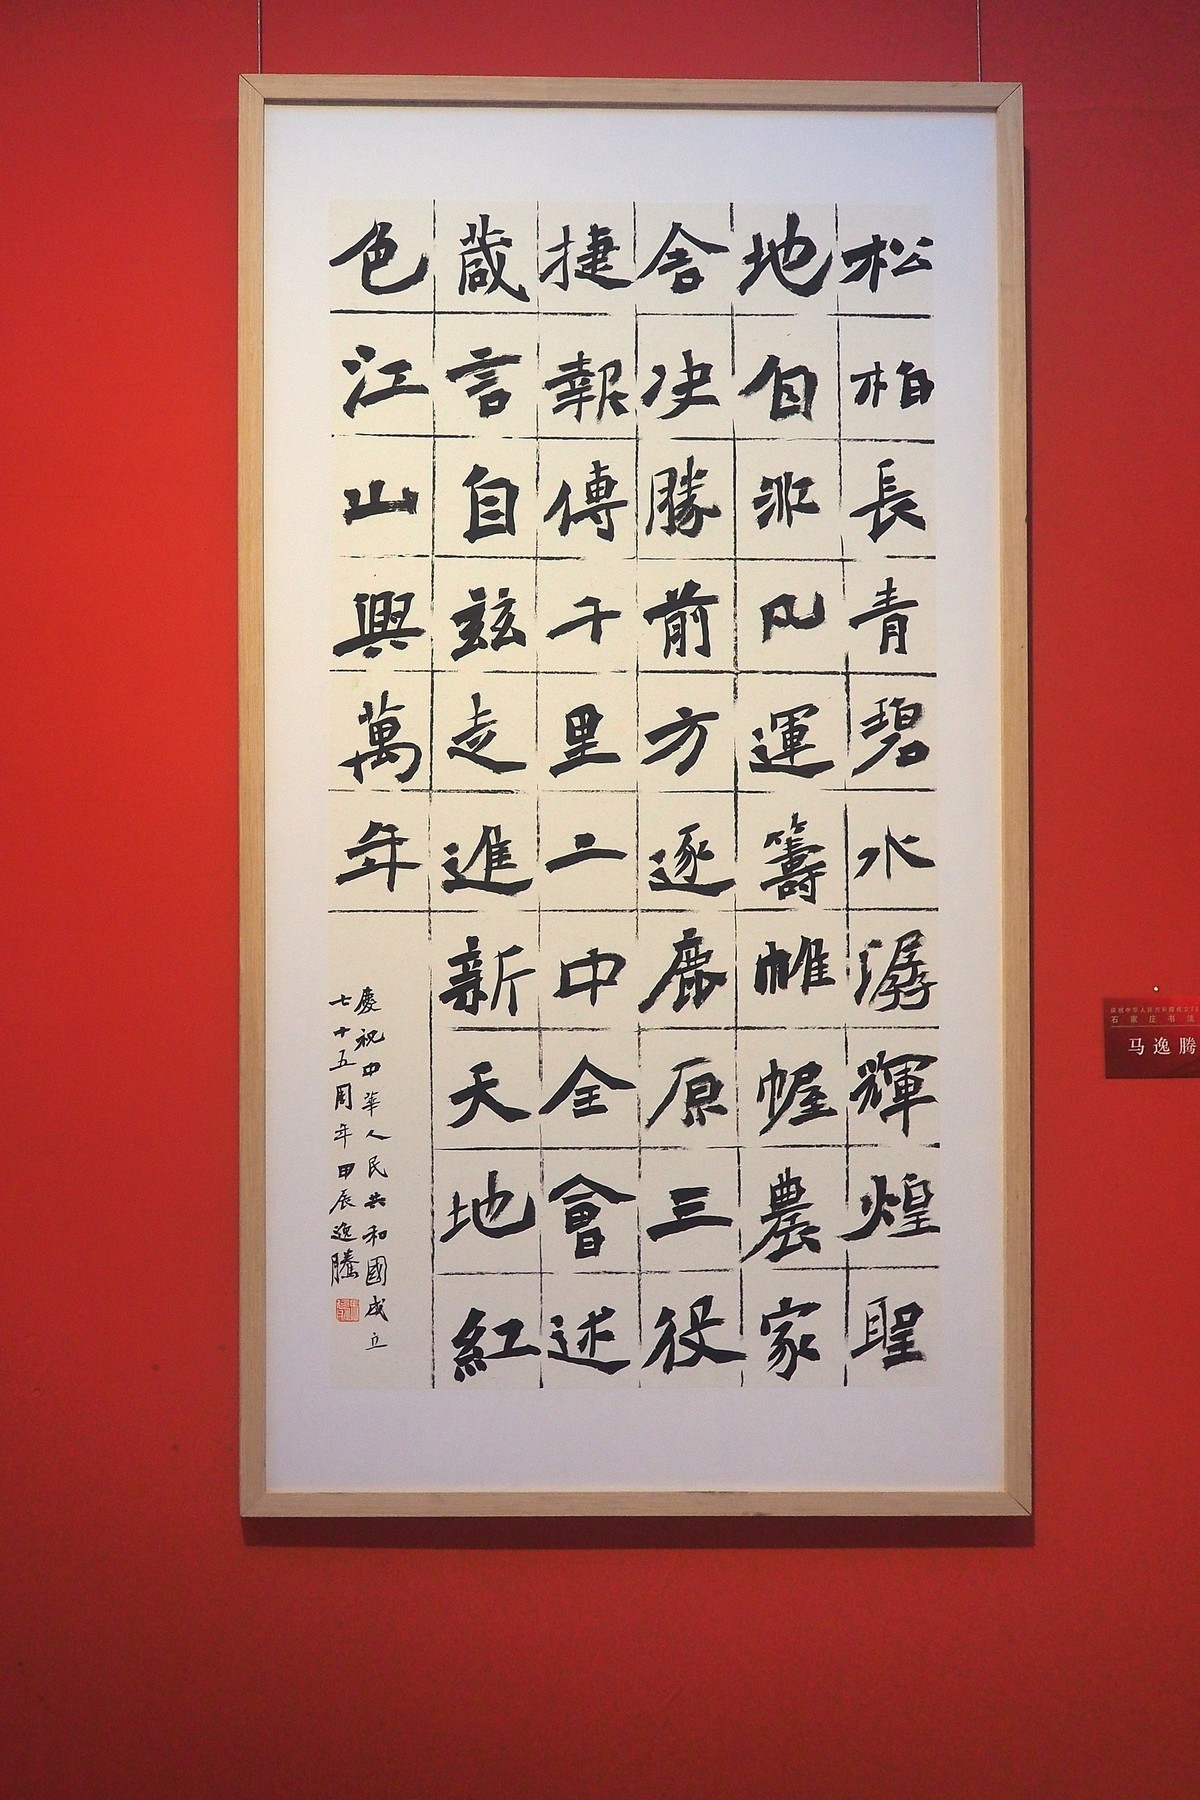 松柏長青碧水潺輝煌聖
地自非凡運籌帷幄農家
舍决勝前方逐鹿原三役
捷報傳千里二中全會述
葴言自玆走進新天地紅
色江山興萬年
慶祝中華人民共和國成立
七十五周年甲辰逸騰
石家庄书法
马逸腾